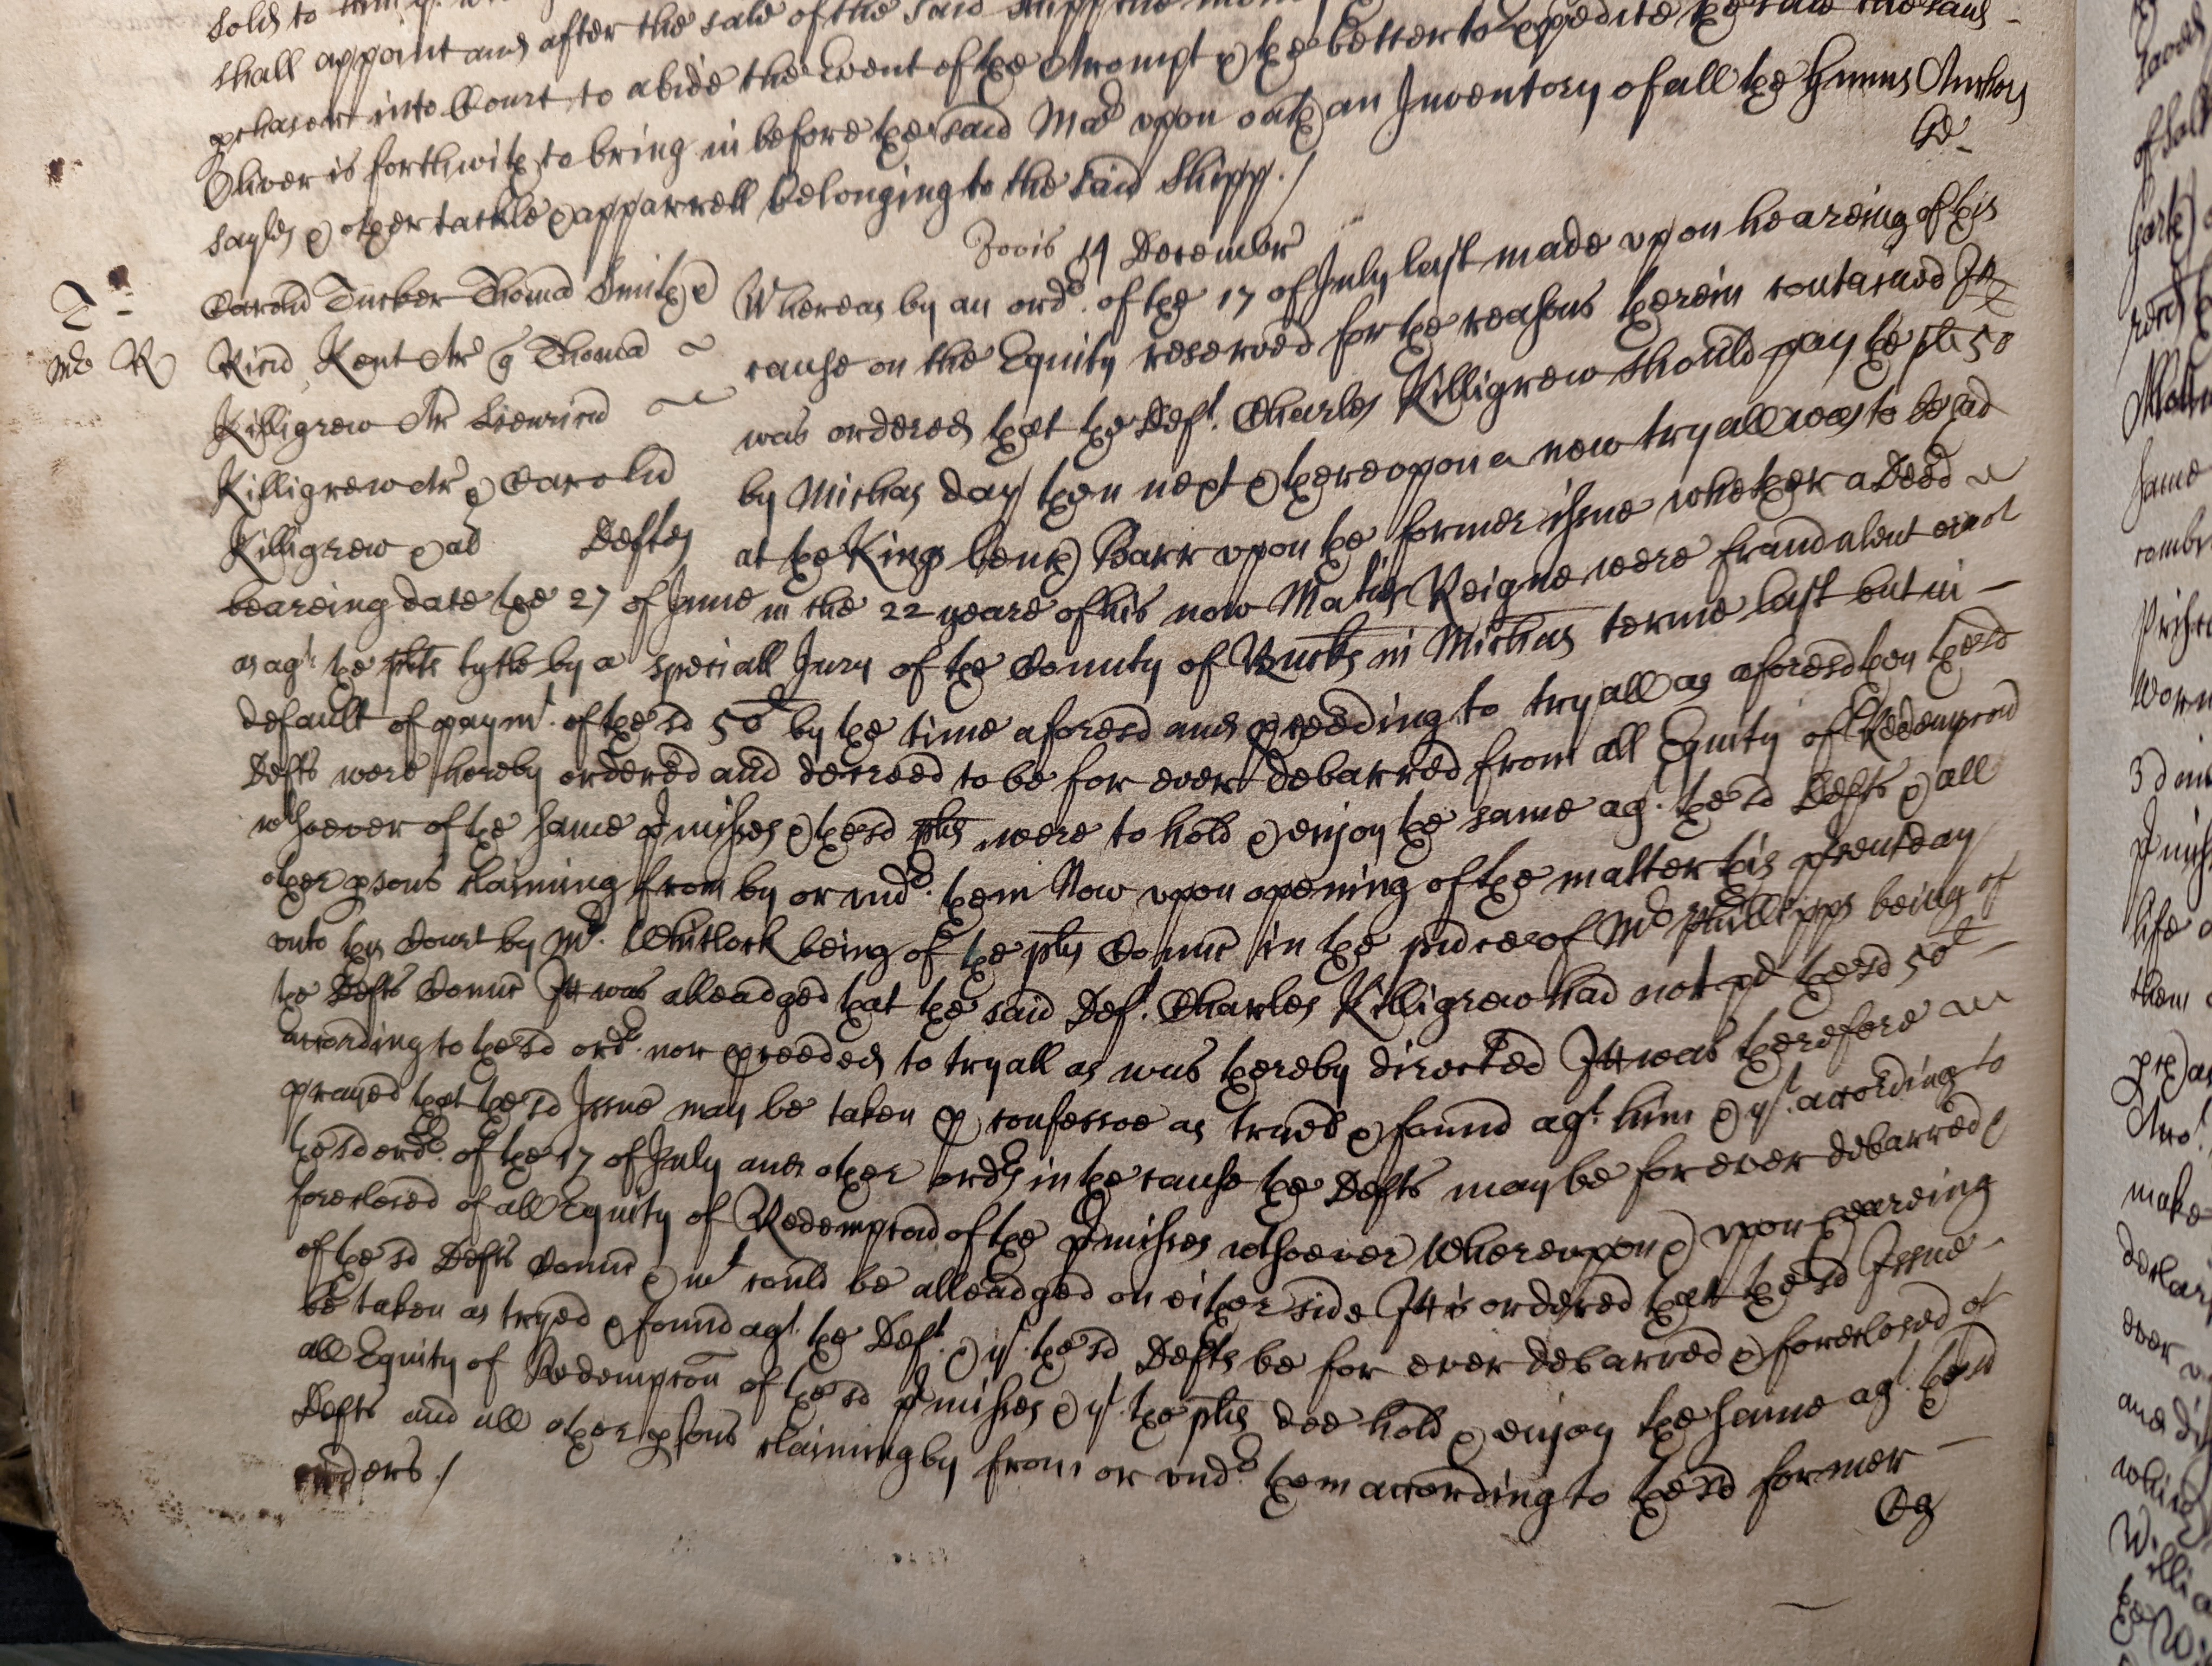 sold to him
shall appoint and after the sale of the said shipp the
pchasor into Court to abide the Event of the Accompt & the better to expedite the sale the said
Oliver is forthwith to bring in before the said Mar upon oath an Inventory of all the Gunns Anchors
sayles & other tackle & apparrell belonging to the said Shipp./
Jovis 14 December
Carold Tucker Thoma Smith &
Ricd Kent Ar q Thoma
Killigrew Ar Henricu
Killigrew Ar & Carolu
Killigrew & al Deftes
Whereas by an ordr. of the 17 of July last made upon heareing of this
cause on the Equity reserved for the reasons therein contained Itt
was ordered that the Deft. Charles Killigrew should pay the plts 50
by Michas day then next & thereupon a new tryall was to be had
at the Kings bench Barr upon the former issue whether a Deed
beareing date the 27 of June in the 22 yeare of his now Maties Reigne were fraudulent or not
as agt. the plts tytle by a speciall Jury of the County of Bucks in Michas terme last but in
default of paymt. of the sd 50l by the time aforesd and pceeding to tryall as aforesd then the sd
Defts were thereby ordered and decreed to be for ever debarred from all Equity of Redempcon
wtsoever of the same pmisses & the sd plts were to hold & enjoy the same agt. the sd Defts & all
other psons claiming from by or undr. them Now upon opening of the matter this psent day
unto this Court by Mr. Whitlock being of the plts Councel in the psence of Mr Phillipps being of
the Defts Councel Itt was alleadged that the said Deft. Charles Killigrew had not pd the sd 50l
according to the sd ordr. nor pceeded to tryall as was thereby directed Itt was therefore
prayed that the sd Issue may be taken p confesso as tryed & found agt. him & yt. according to
the sd ordr. of the 17 of July and other ordrs in the cause the Defts may be for ever debarred &
foreclosed of all Equity of Redempcon of the pmisses wtsoever Whereupon & upon heareing
of the sd Defts Councel & wt could be alleadged on either side Itt is ordered that the sd Issue
be taken as tryed & found agt. the Deft. & yt. the sd Defts be for ever debarred & foreclosed of
all Equity of Redempcon of the sd pmisses & yt. the plts doe hold & enjoy the same agt. the sd
Defts and all other psons claiming by from or undr. them according to the sd former
orders./